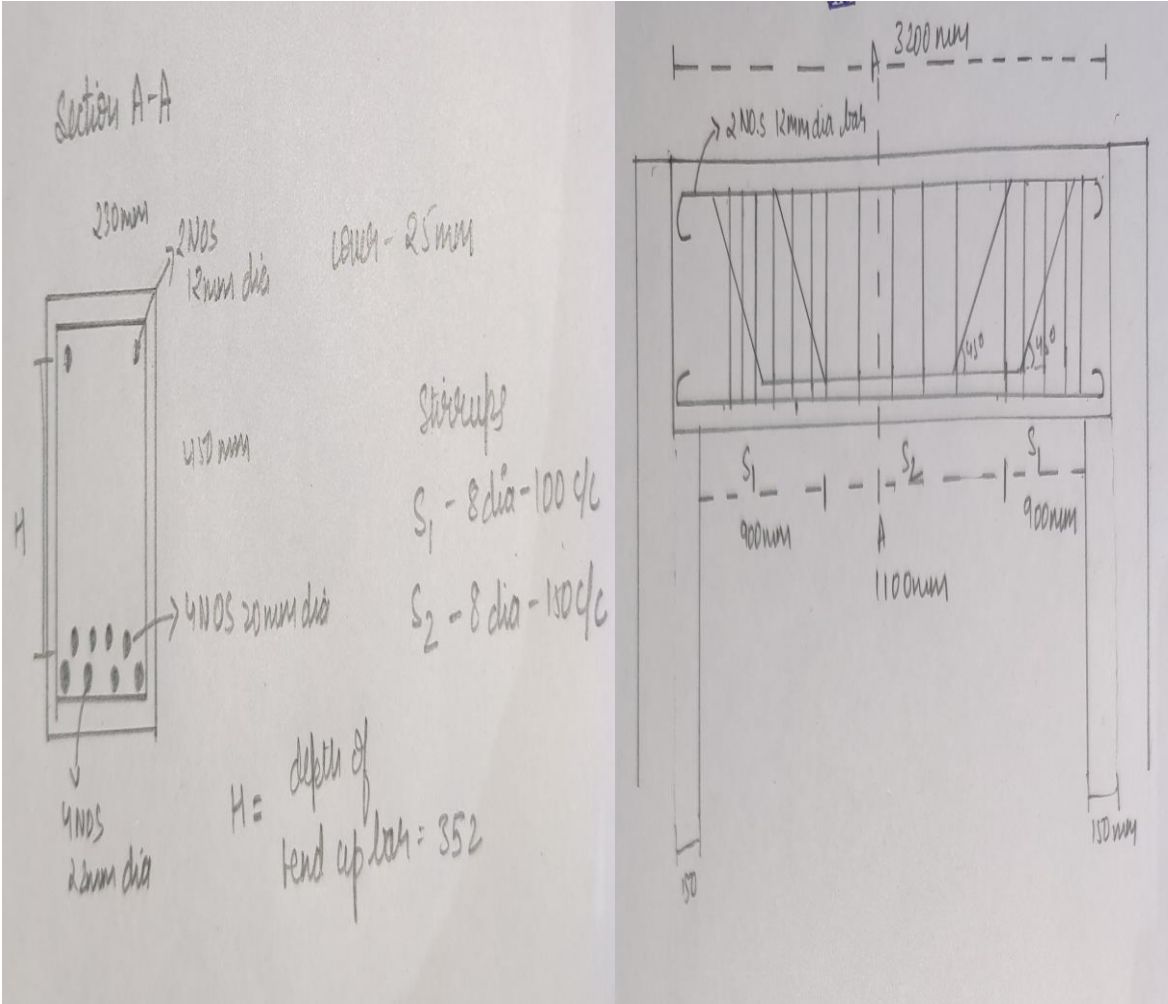 Section A-A
230mm
2NOS
12mm dia
cover - 25mm
450mm
H
Stirrups
S1 - 8 dia - 100 c/c
S2 - 8 dia - 150 c/c
4NOS 20mm dia
4NOS
22mm dia
H = depth of
bend up bar = 352
3200mm
A
2NO.S 12mm dia bar
45°
45°
S1
S2
S1
900mm
A
900mm
1100mm
150
150mm